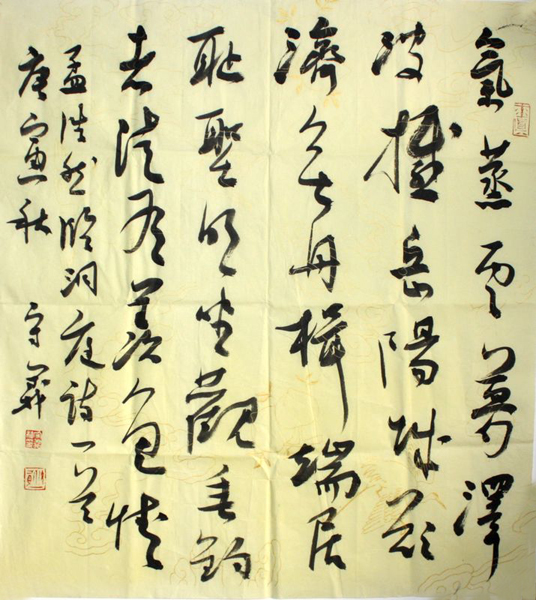 氣蒸雲夢澤
波撼岳陽城欲
濟無舟楫端居
恥聖明坐觀垂釣
者徒有羨魚情
孟浩然臨洞庭詩一首
庚寅秋